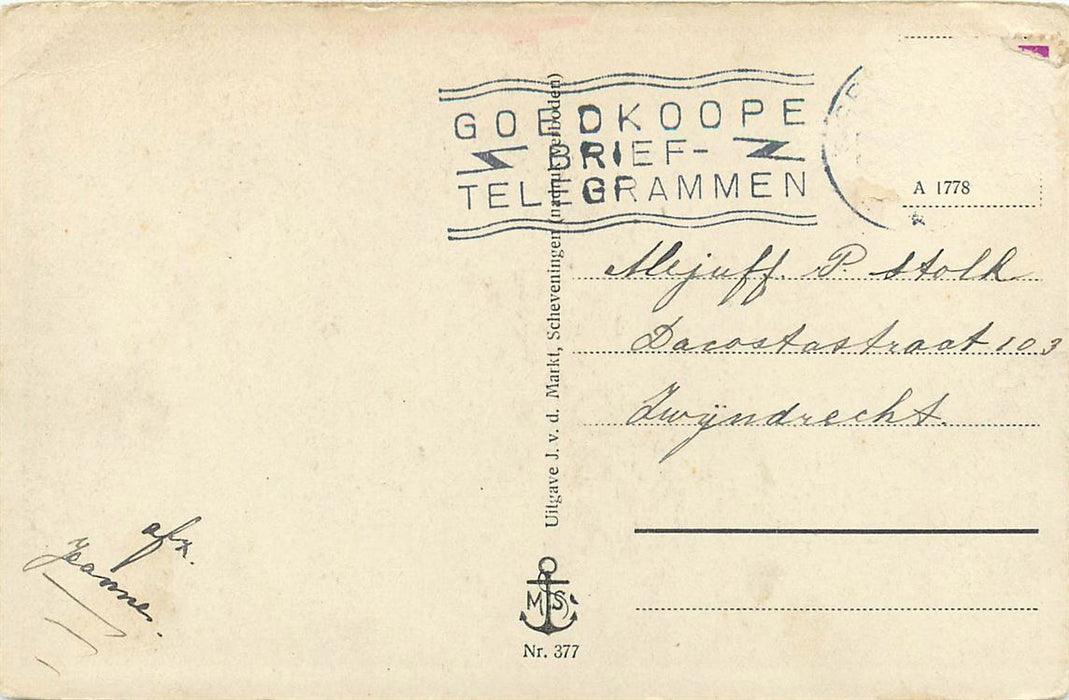 GOEDKOOPE
BRIEF-
TELEGRAMMEN
A 1778
Mejuff. P. Stolk
Dacostastraat 103
Zwijndrecht.
Uitgave J. v. d. Markt, Scheveningen (nadruk verboden)
afz.
Hanne.
MS
Nr. 377